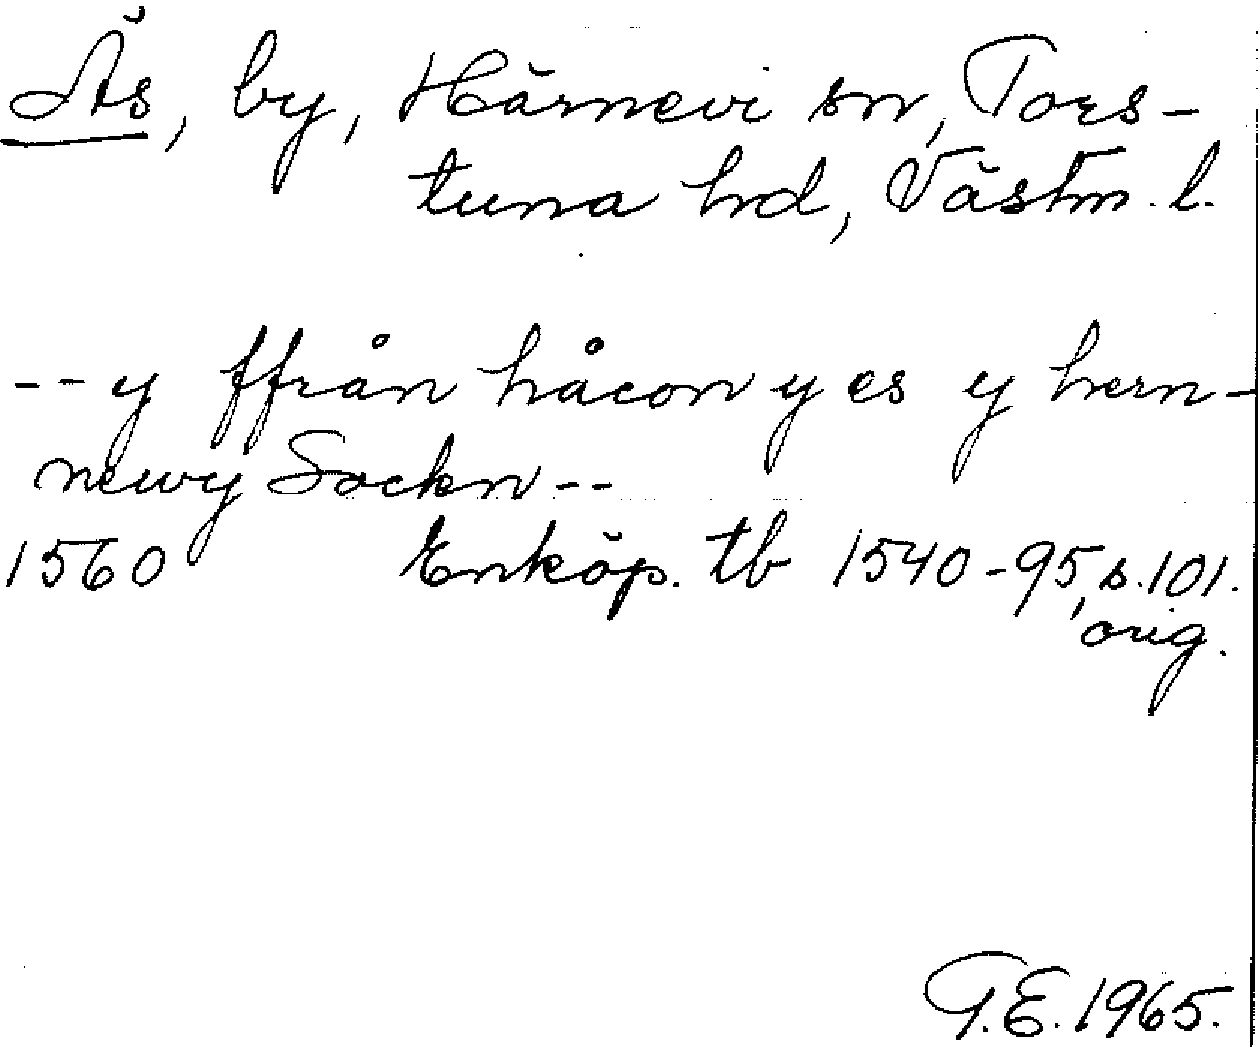 Äs, by, Härnevi sn, Tors-
tuna hd, Västm. l.
-- y ffrån håcon y es y hern-
newy Sockn --
1560 Enköp. tb 1540-95, s. 101.
orig.
G.E. 1965.